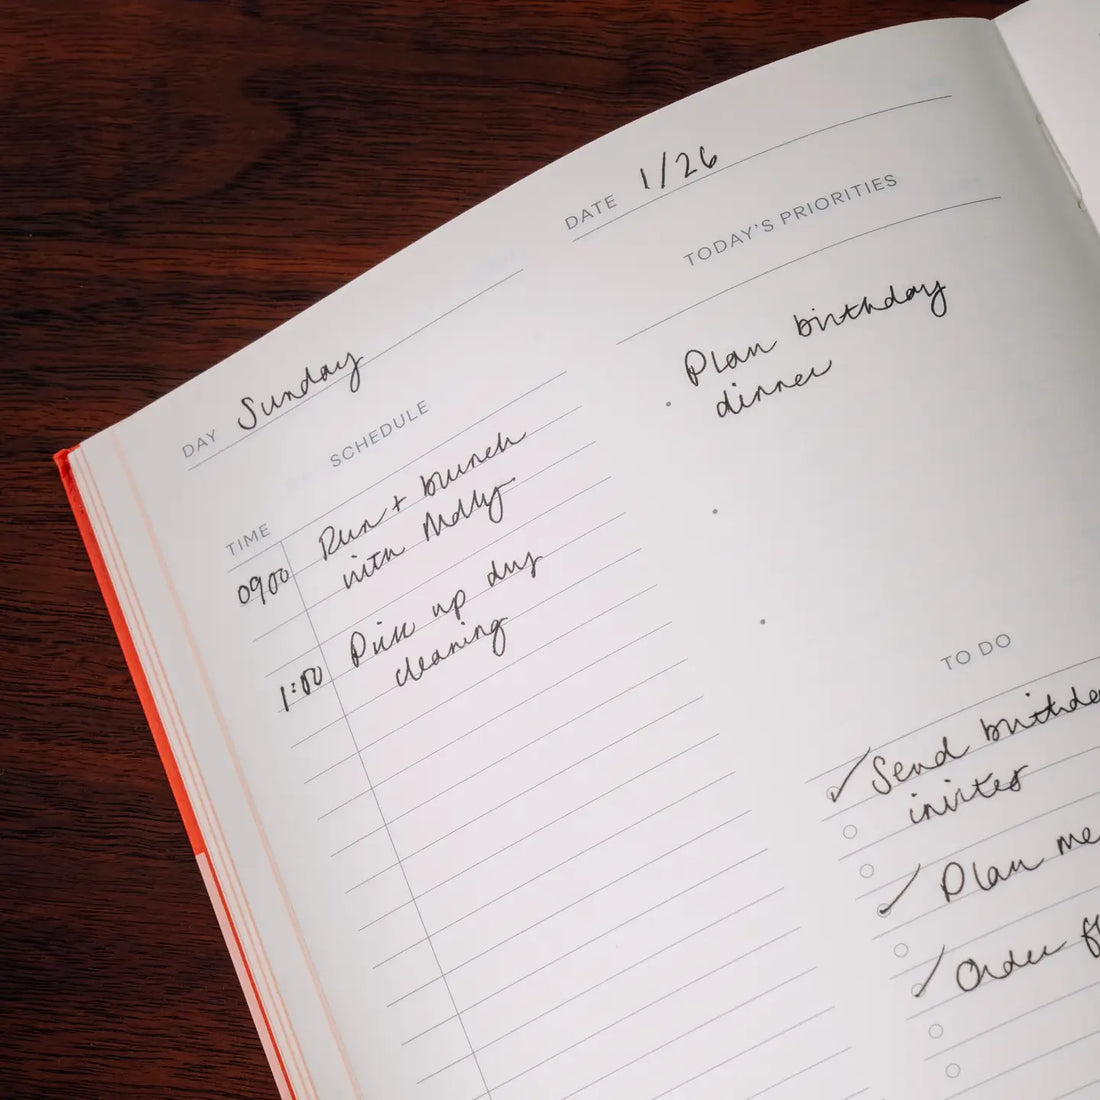 DATE 1/26
DAY Sunday
SCHEDULE
TIME
09:00 Run + brunch
with Molly
1:00 Pick up dry
cleaning
TODAY'S PRIORITIES
Plan birthday
dinner
TO DO
Send
invites
Plan
Order